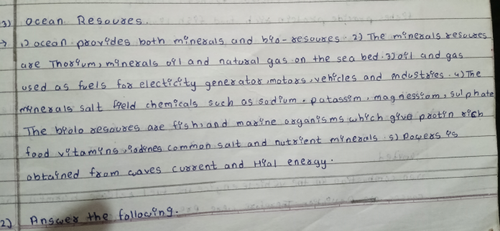 3) Ocean Resoures.
→ 1) Ocean provides both minerals and bio-resoures 2) The minerals resoures
are Thorium, minerals oil and natural gas on the sea bed. 3) oil and gas
used as fuels for electicity generator, motors, vehicles and industries. 4) The
minerals salt field chemicals such as sodium, patassim, magnessiom, sulphate
The biolo resoures are fish, and marine organisms which give protin rich
food vitamins, iodines common salt and nutrient minerals. 5) Powers is
obtained from waves current and Hial energy.
2) Answer the following.